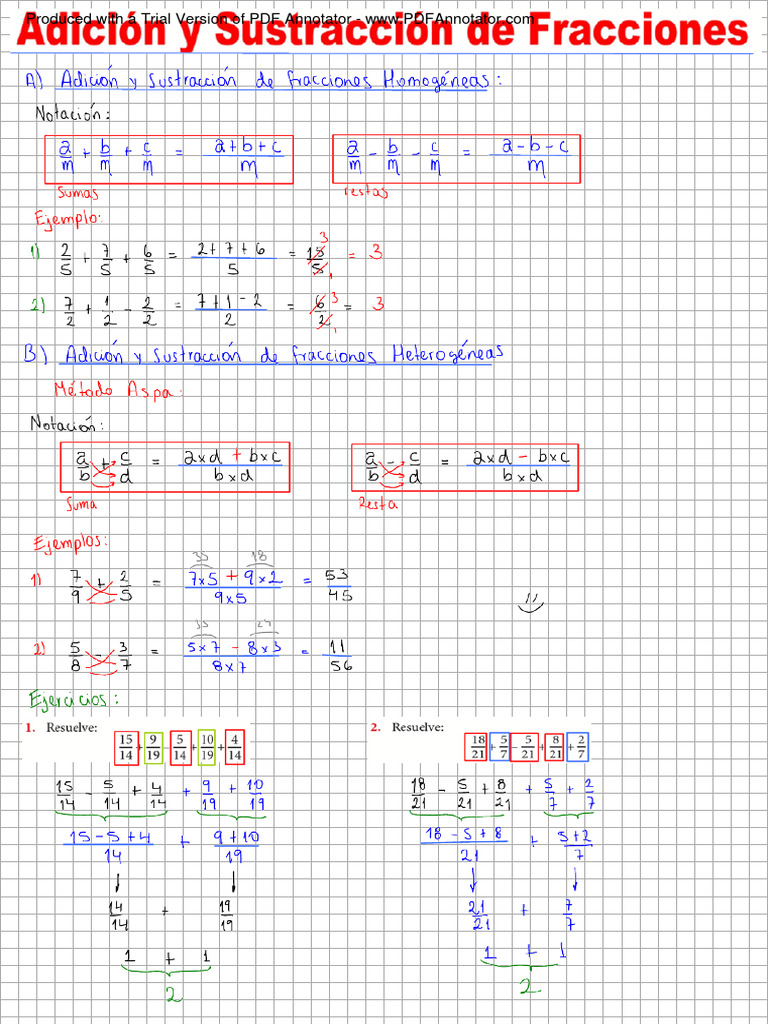 Produced with a Trial Version of PDF Annotator - www.PDFAnnotator.com
Adición y Sustracción de Fracciones
A) Adición y Sustracción de fracciones Homogéneas:
Notación:
a/m + b/m + c/m = a+b+c/m
a/m - b/m - c/m = a-b-c/m
Sumas
restas
Ejemplo:
1) 2/5 + 7/5 + 6/5 = 2+7+6/5 = 15/5 3 1 = 3
2) 7/2 + 1/2 - 2/2 = 7+1-2/2 = 6/2 3 1 = 3
B) Adición y Sustracción de fracciones Heterogéneas
Método Aspa:
Notación:
a/b + c/d = axd + bxc/bxd
a/b - c/d = axd - bxc/bxd
Suma
Resta
Ejemplos:
35 18
1) 7/9 + 2/5 = 7x5 + 9x2/9x5 = 53/45
35 24
2) 5/8 - 3/7 = 5x7 - 8x3/8x7 = 11/56
Ejercicios:
1. Resuelve:
15/14 + 9/19 - 5/14 + 10/19 + 4/14
15/14 - 5/14 + 4/14 + 9/19 + 10/19
15-5+4/14 + 9+10/19
14/14 + 19/19
1 + 1
2
2. Resuelve:
18/21 + 5/7 - 5/21 + 8/21 + 2/7
18/21 - 5/21 + 8/21 + 5/7 + 2/7
18-5+8/21 + 5+2/7
21/21 + 7/7
1 + 1
2